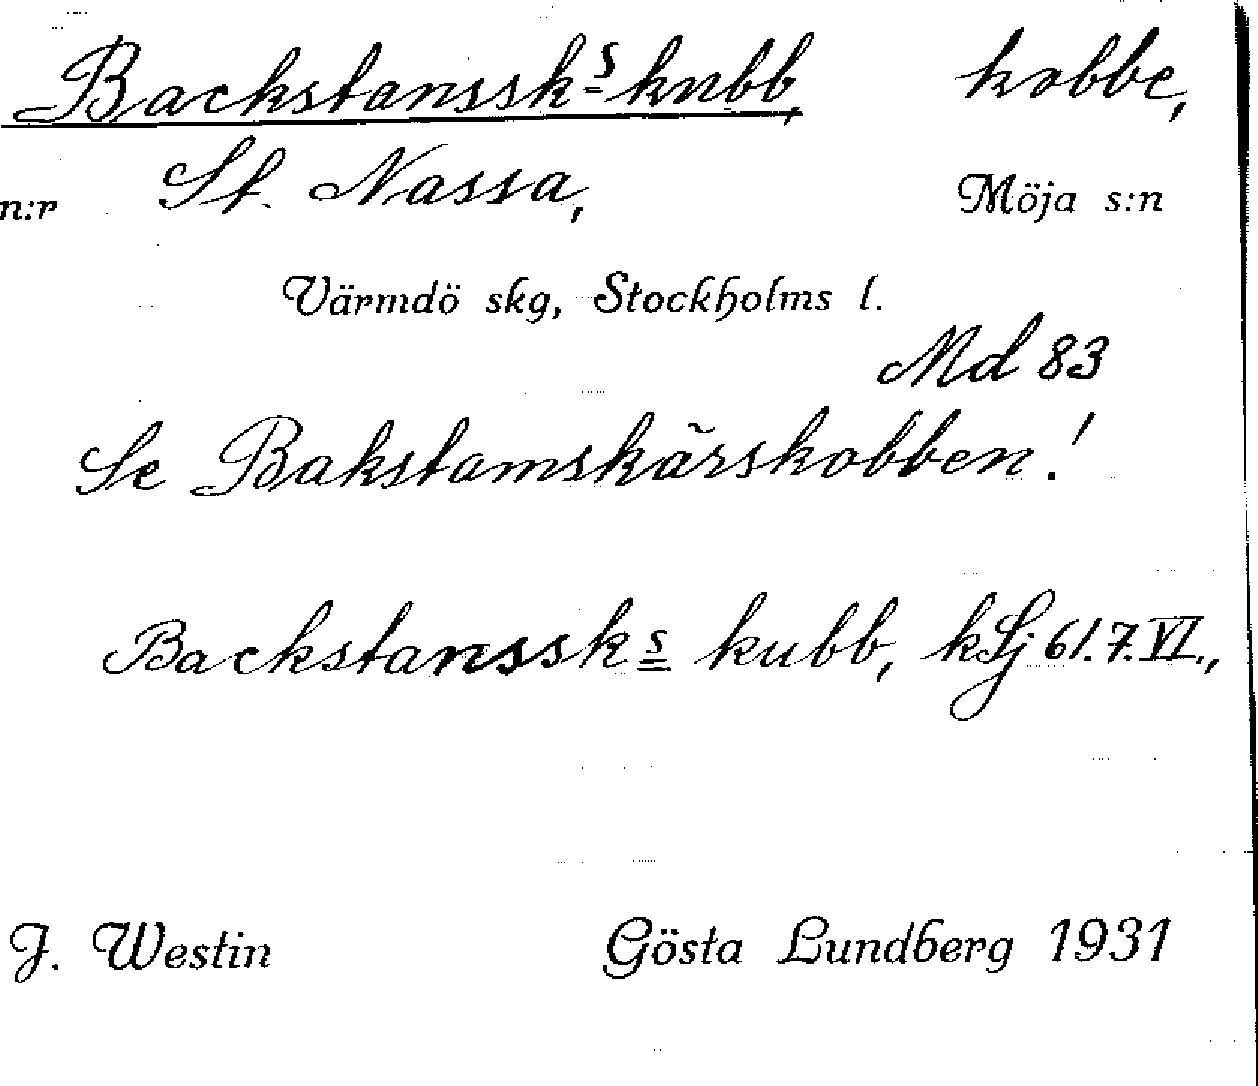 Backstanssk s kubb, kobbe,
n:r St. Nassa, Möja s:n
Värmdö skg, Stockholms l.
Md 83
Se Bakstamskärskobben!
Backstanssk s kubb, kSj 61.7.VI.,
J. Westin Gösta Lundberg 1931